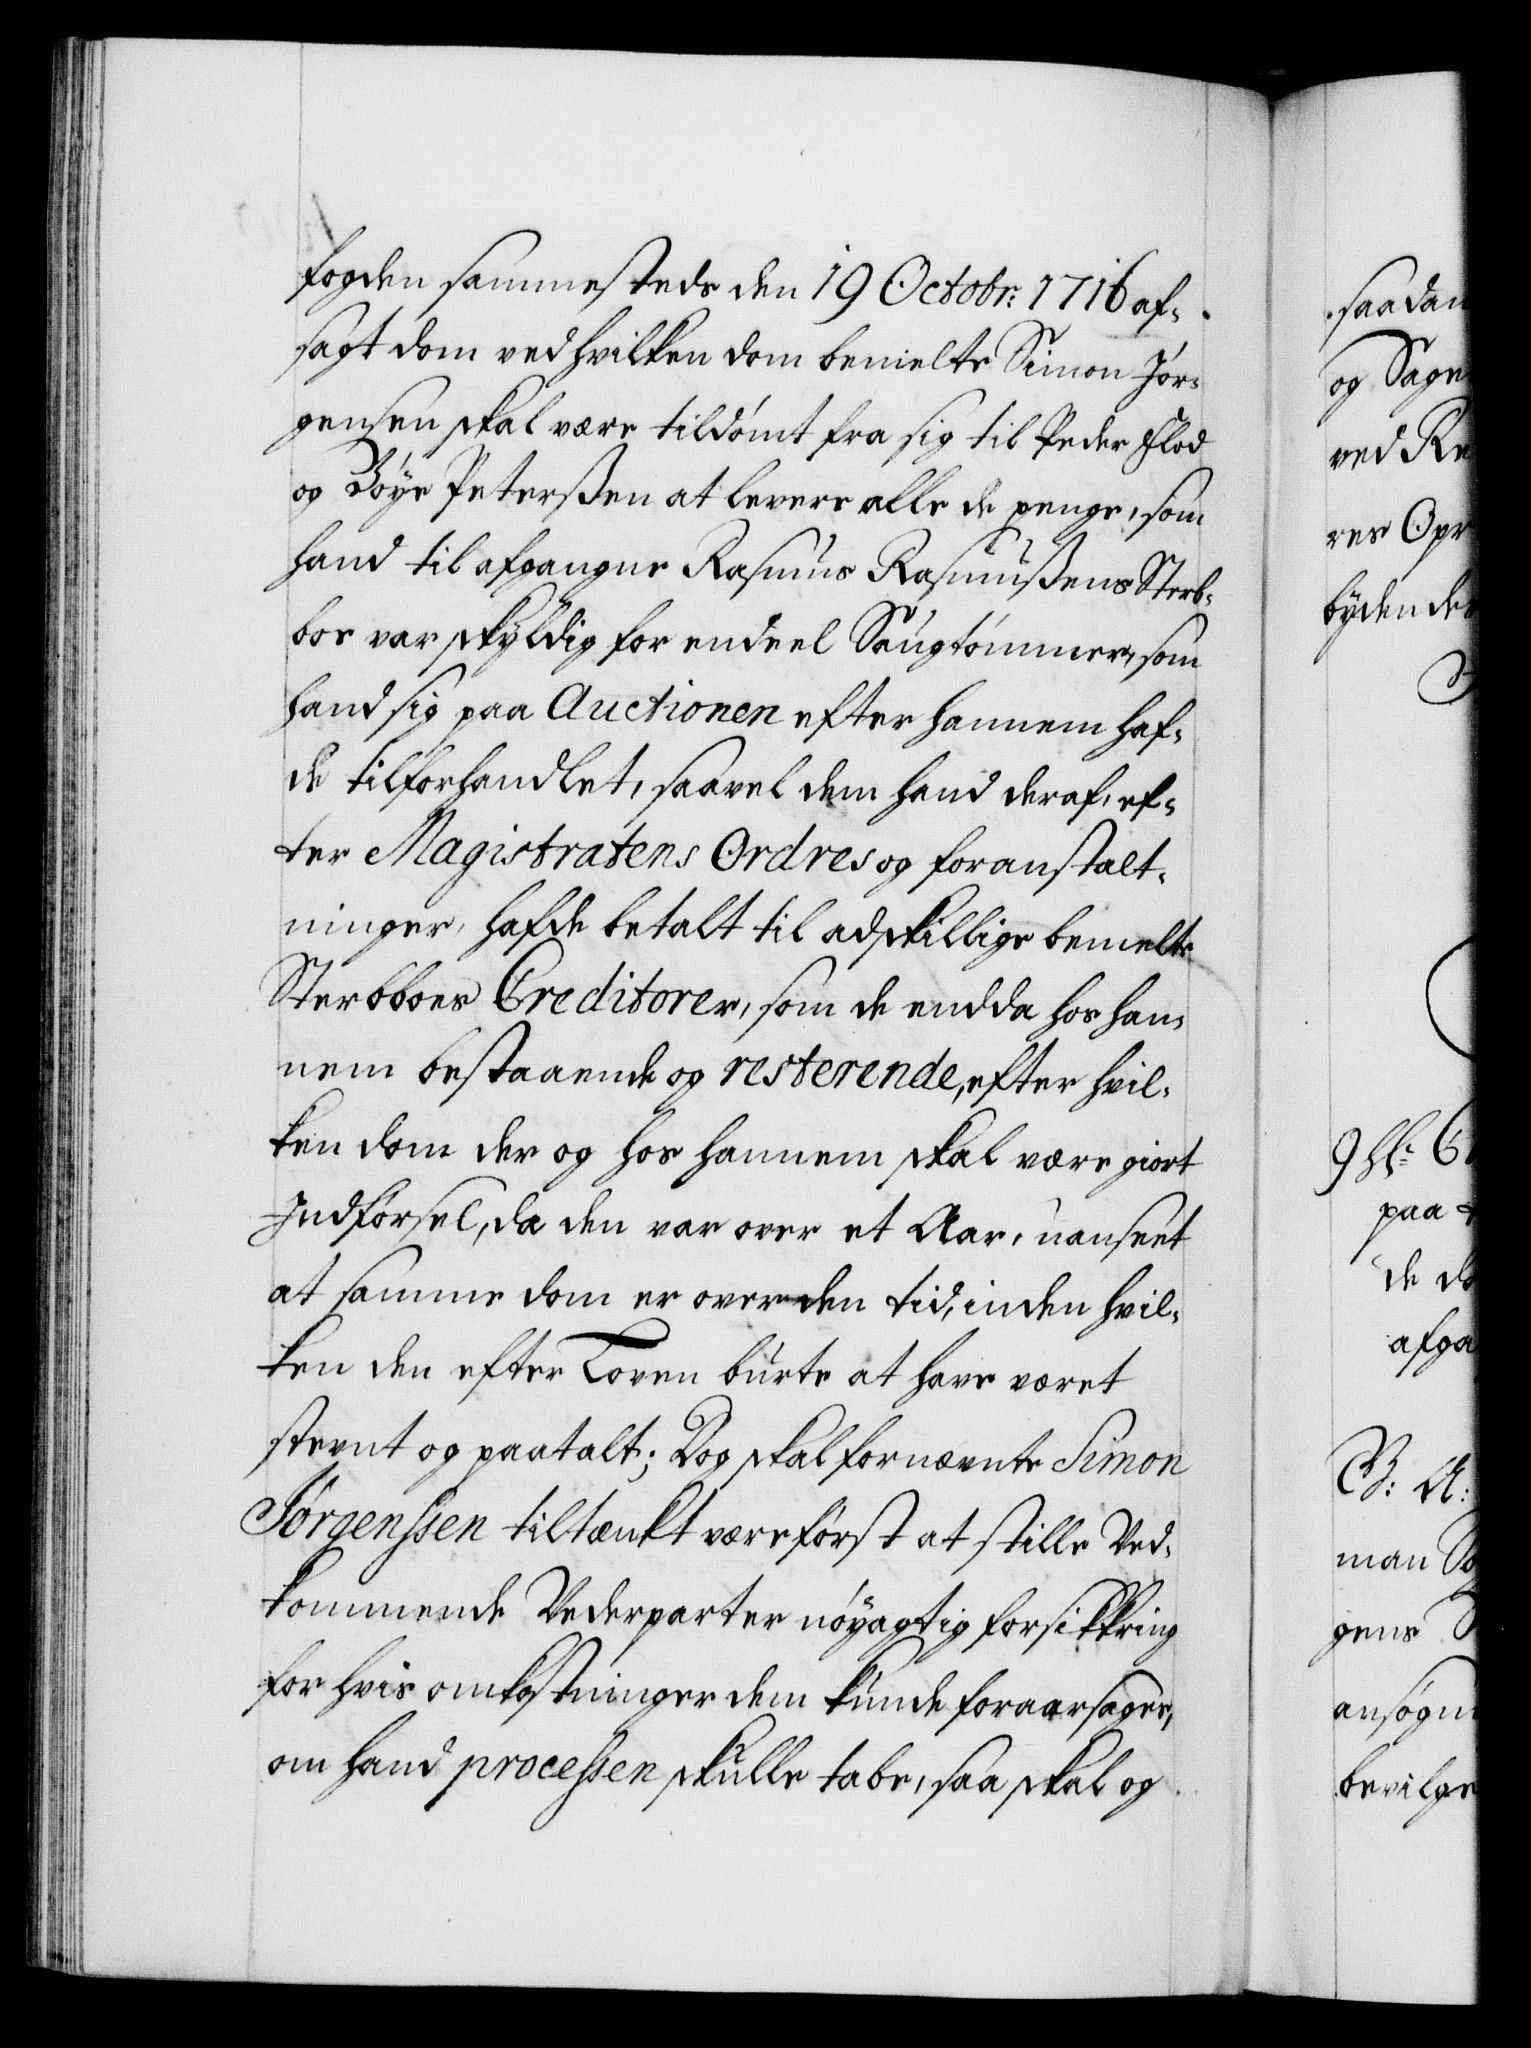 fogden sammesteds den 19 Octobr: 1716 af-
sagt dom ved hvilken dom bemelte Simon Jør-
gensen skal være tildømt fra sig til Peder Flod
og Bøye Peterssen at levere alle de penge, som
hand til afgangne Rasmus Rasmussens Sterb-
boe var skyldig for endeel Saugtømmer, som
hand sig paa Auctionen efter hannem haf-
de tilforhandlet, saavel dem hand deraf, ef-
ter Magistratens Ordres og foranstalt-
ninger, hafde betalt til adskillige bemelte
Sterbboes Creditorer, som de endda hos han-
nem bestaaende og resterende, efter hvil-
ken dom der og hos hannem skal være giort
Indførsel, da den var over et Aar, uanseet
at samme dom er over den tid, inden hvil-
ken den efter Loven burte at have været
stevnt og paatalt; Dog skal fornævnte Simon
Jørgenssen tiltænkt være først at stille Ved-
kommende Vederparter nøyagtig forsikkring
for hvis omkostninger dem kunde foraarsages,
om hand processen skulle tabe, saa skal og
saadan
og Sage
ved Re
res Opr
byden de
paa
de do
afga
B: A:
man
gens
ansøgn
bevilge